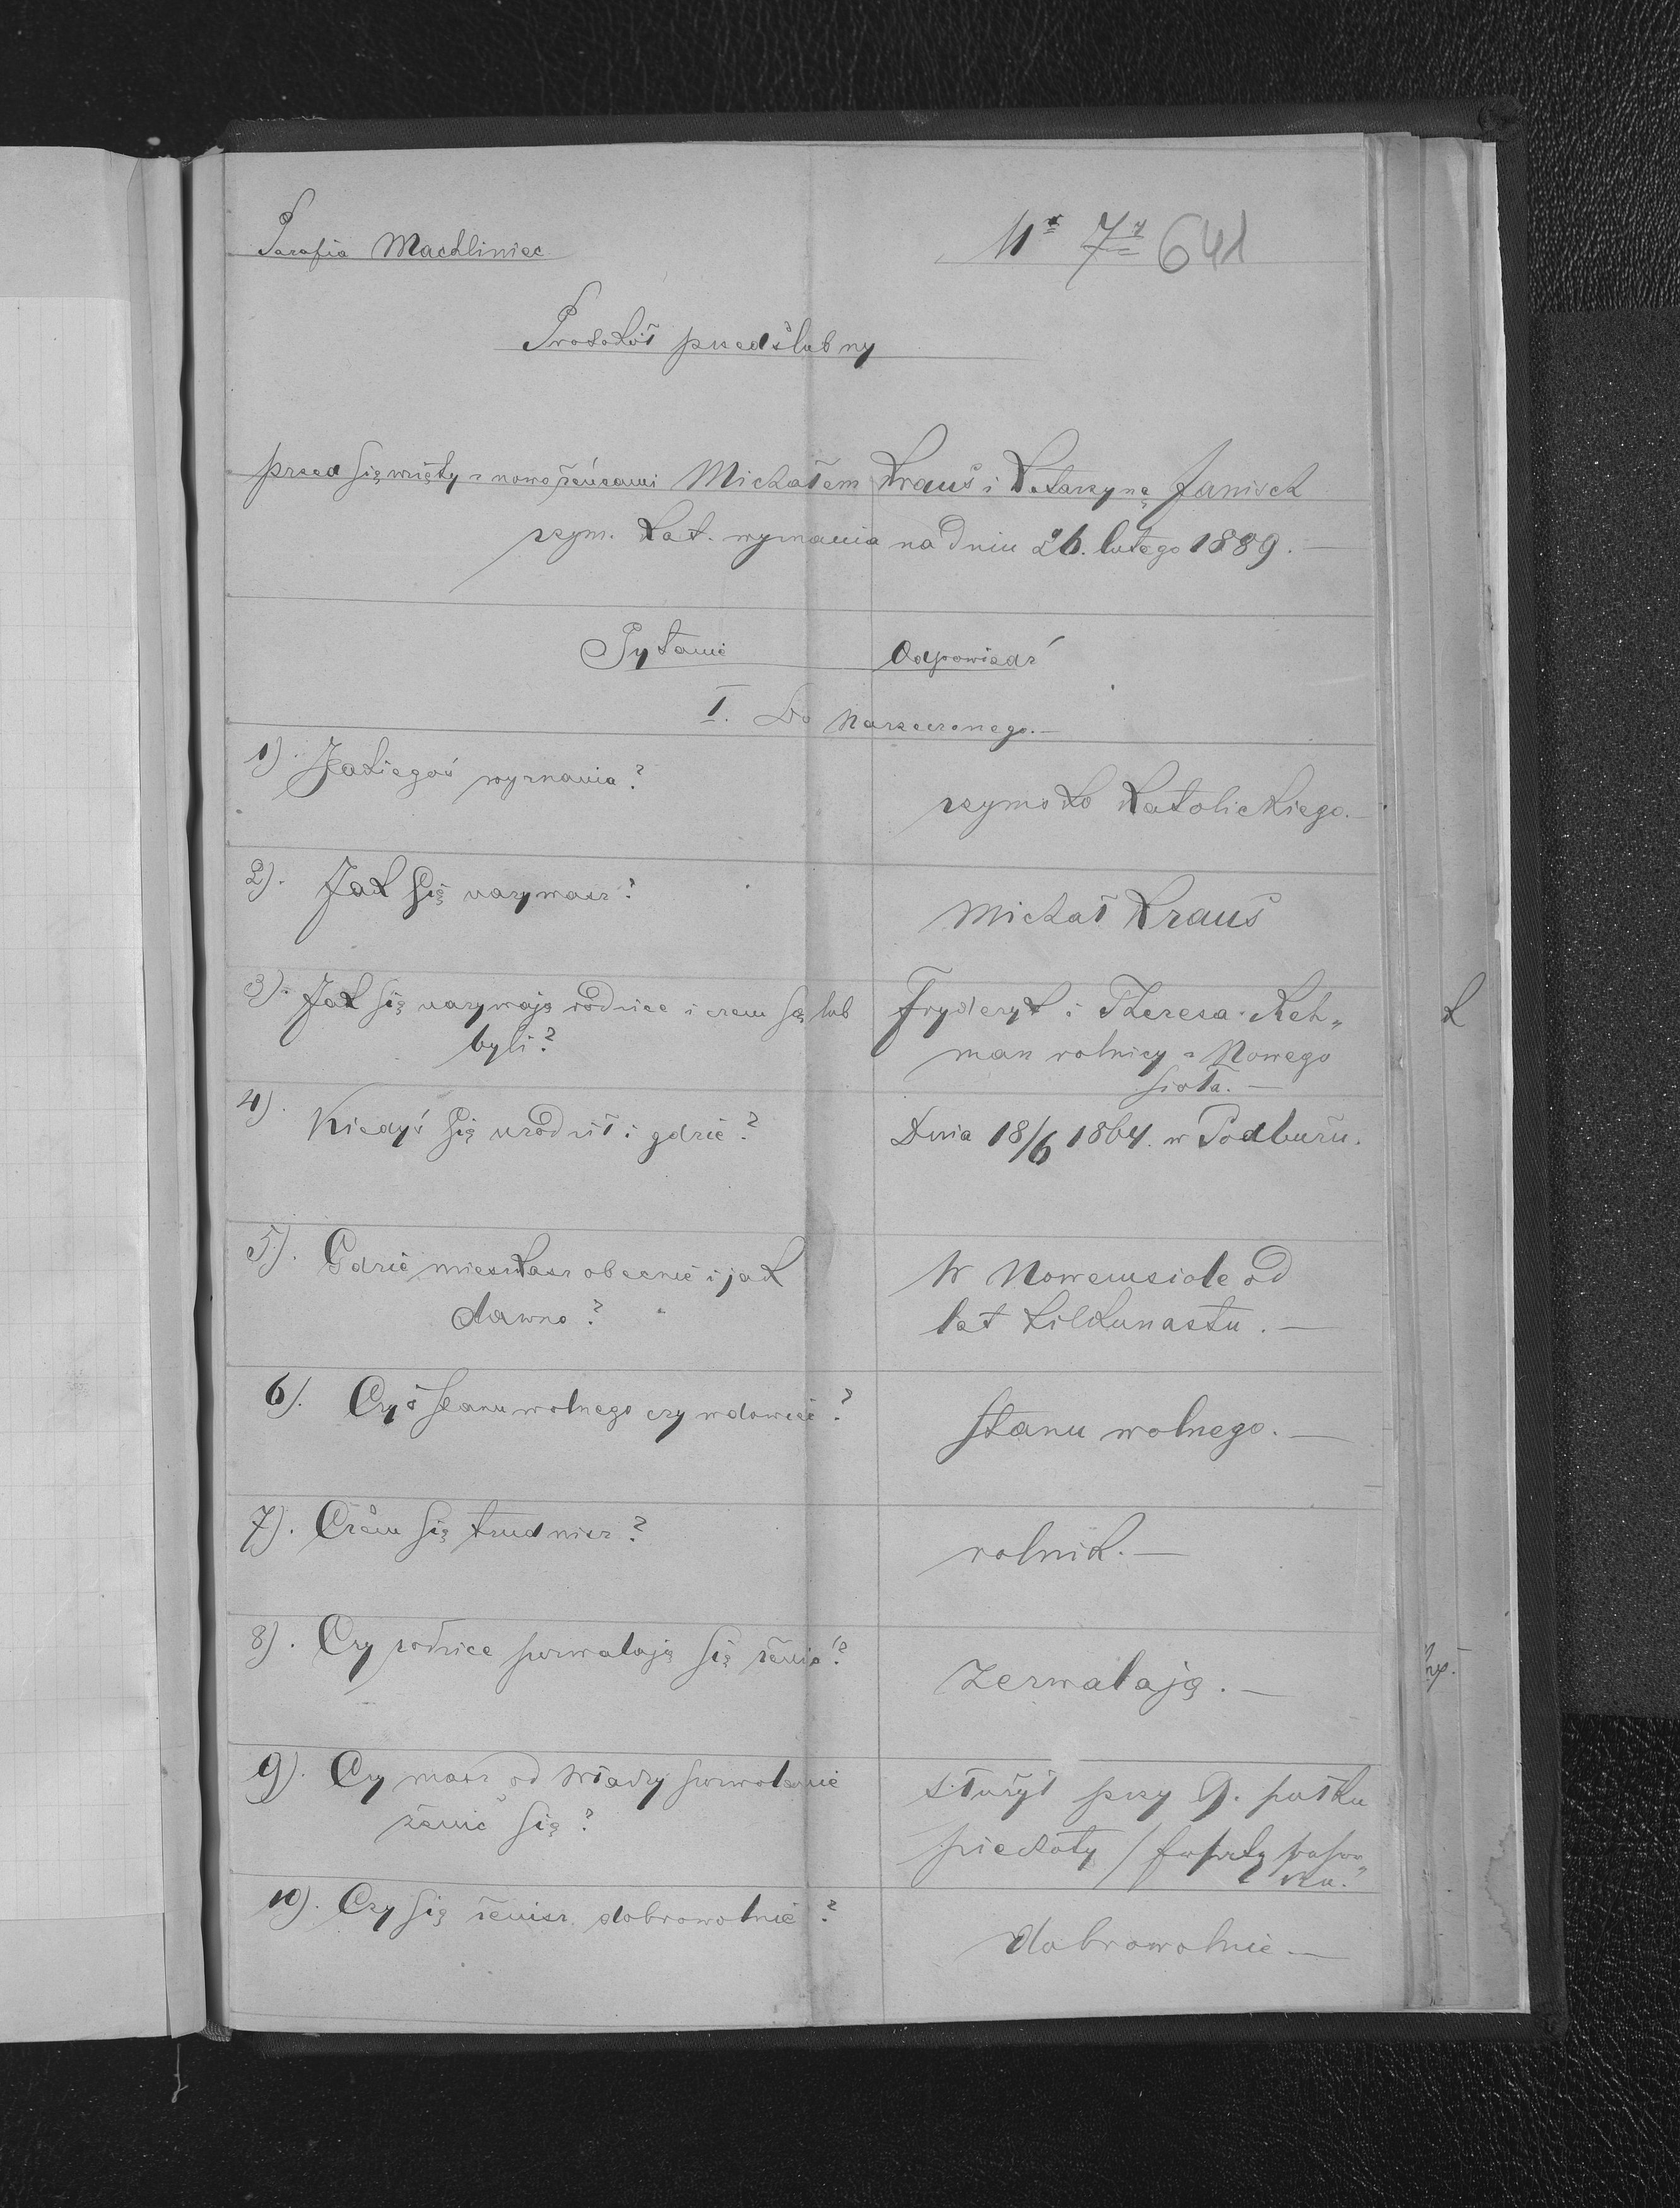 Parafia Machliniec
Nr 7 641
Protokół przedślubny
przedsięwzięty z nowożeńcami Michałem Kraus i Katarzyną Janisch
rzym. kat. wyznania na dniu 26. lutego 1889. —
Pytanie Odpowiedź
I. Do Narzeczonego. —
1). Jakiegoś wyznania?
rzymsko katolickiego. —
2). Jak się nazywasz?
Michał Kraus
3). Jak się nazywają rodzice i czem są lub
byli?
Fryderyk i Theresa Reh„
man rolnicy z Nowego
sioła. —
4). Kiedyś się urodził i gdzie?
Dnia 18/6 1864. w Podbużu.
5). Gdzie mieszkasz obecnie i jak
dawno?
W Nowemsiole od
lat kilkunastu. —
6). Czyś stanu wolnego czy wdowiec?
Stanu wolnego. —
7). Czem się trudnisz?
rolnik. —
8). Czy rodzice pozwalają się żenić?
Zezwalają. —
9). Czy masz od władzy pozwolenie
żenić się?
Służył przy 9. pułku
piechoty /
10). Czy się żenisz dobrowolnie?
dobrowolnie —